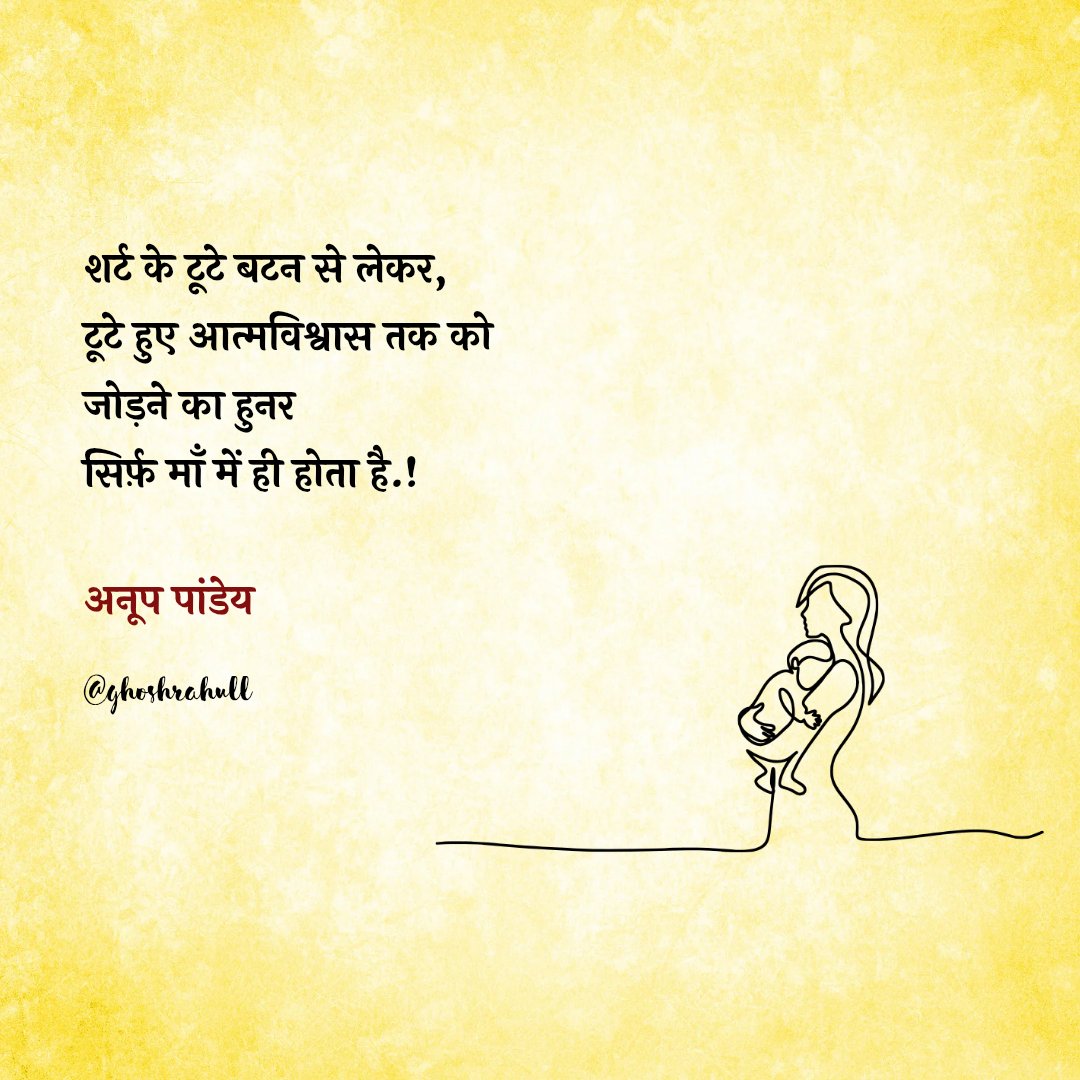 शर्ट के टूटे बटन से लेकर,
टूटे हुए आत्मविश्वास तक को
जोड़ने का हुनर
सिर्फ़ माँ में ही होता है.!
अनूप पांडेय
@ghoshrahull